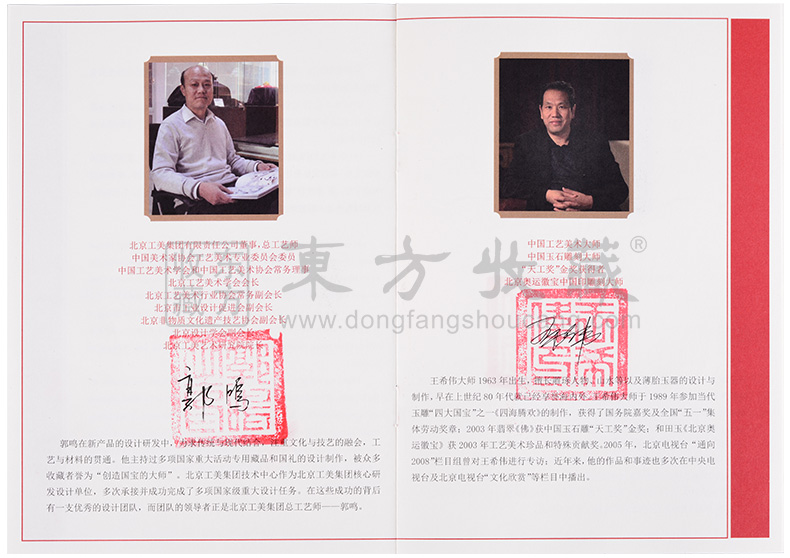 北京工美集团有限责任公司董事,总工艺师
中国美术家协会工艺美术专业委员会委员
中国工艺美术学会和中国工艺美术协会常务理事
北京工艺美术学会会长
北京工艺美术行业协会常务副会长
北京市工业设计促进会副会长
北京非物质文化遗产技艺协会副会长
北京设计学会副会长
郭鸣
郭鸣在新产品的设计研发中,力求传统与现代结合,注重文化与技艺的融会,工
艺与材料的贯通。他主持过多项国家重大活动专用藏品和国礼的设计制作,被众多
收藏者誉为“创造国宝的大师”。北京工美集团技术中心作为北京工美集团核心研
发设计单位,多次承接并成功完成了多项国家级重大设计任务。在这些成功的背后
有一支优秀的设计团队,而团队的领导者正是北京工美集团总工艺师——郭鸣。
中国工艺美术大师
中国玉石雕刻大师
“天工奖”金奖获得者
北京奥运徽宝中国印雕刻大师
王希伟
王希伟大师 1963 年出生,擅长雕琢人物、山水等以及薄胎玉器的设计与
制作,早在上世纪 80 年代就已经享誉海内外。王希伟大师于 1989 年参加当代
玉雕“四大国宝”之一《四海腾欢》的制作,获得了国务院嘉奖及全国“五一”集
体劳动奖章;2003 年翡翠《佛》获中国玉石雕“天工奖”金奖;和田玉《北京奥
运徽宝》获 2003 年工艺美术珍品和特殊贡献奖。2005 年,北京电视台“通向
2008”栏目组曾对王希伟进行专访;近年来,他的作品和事迹也多次在中央电
视台及北京电视台“文化欣赏”等栏目中播出。
東方收藏®
www.dongfangshoucang.com